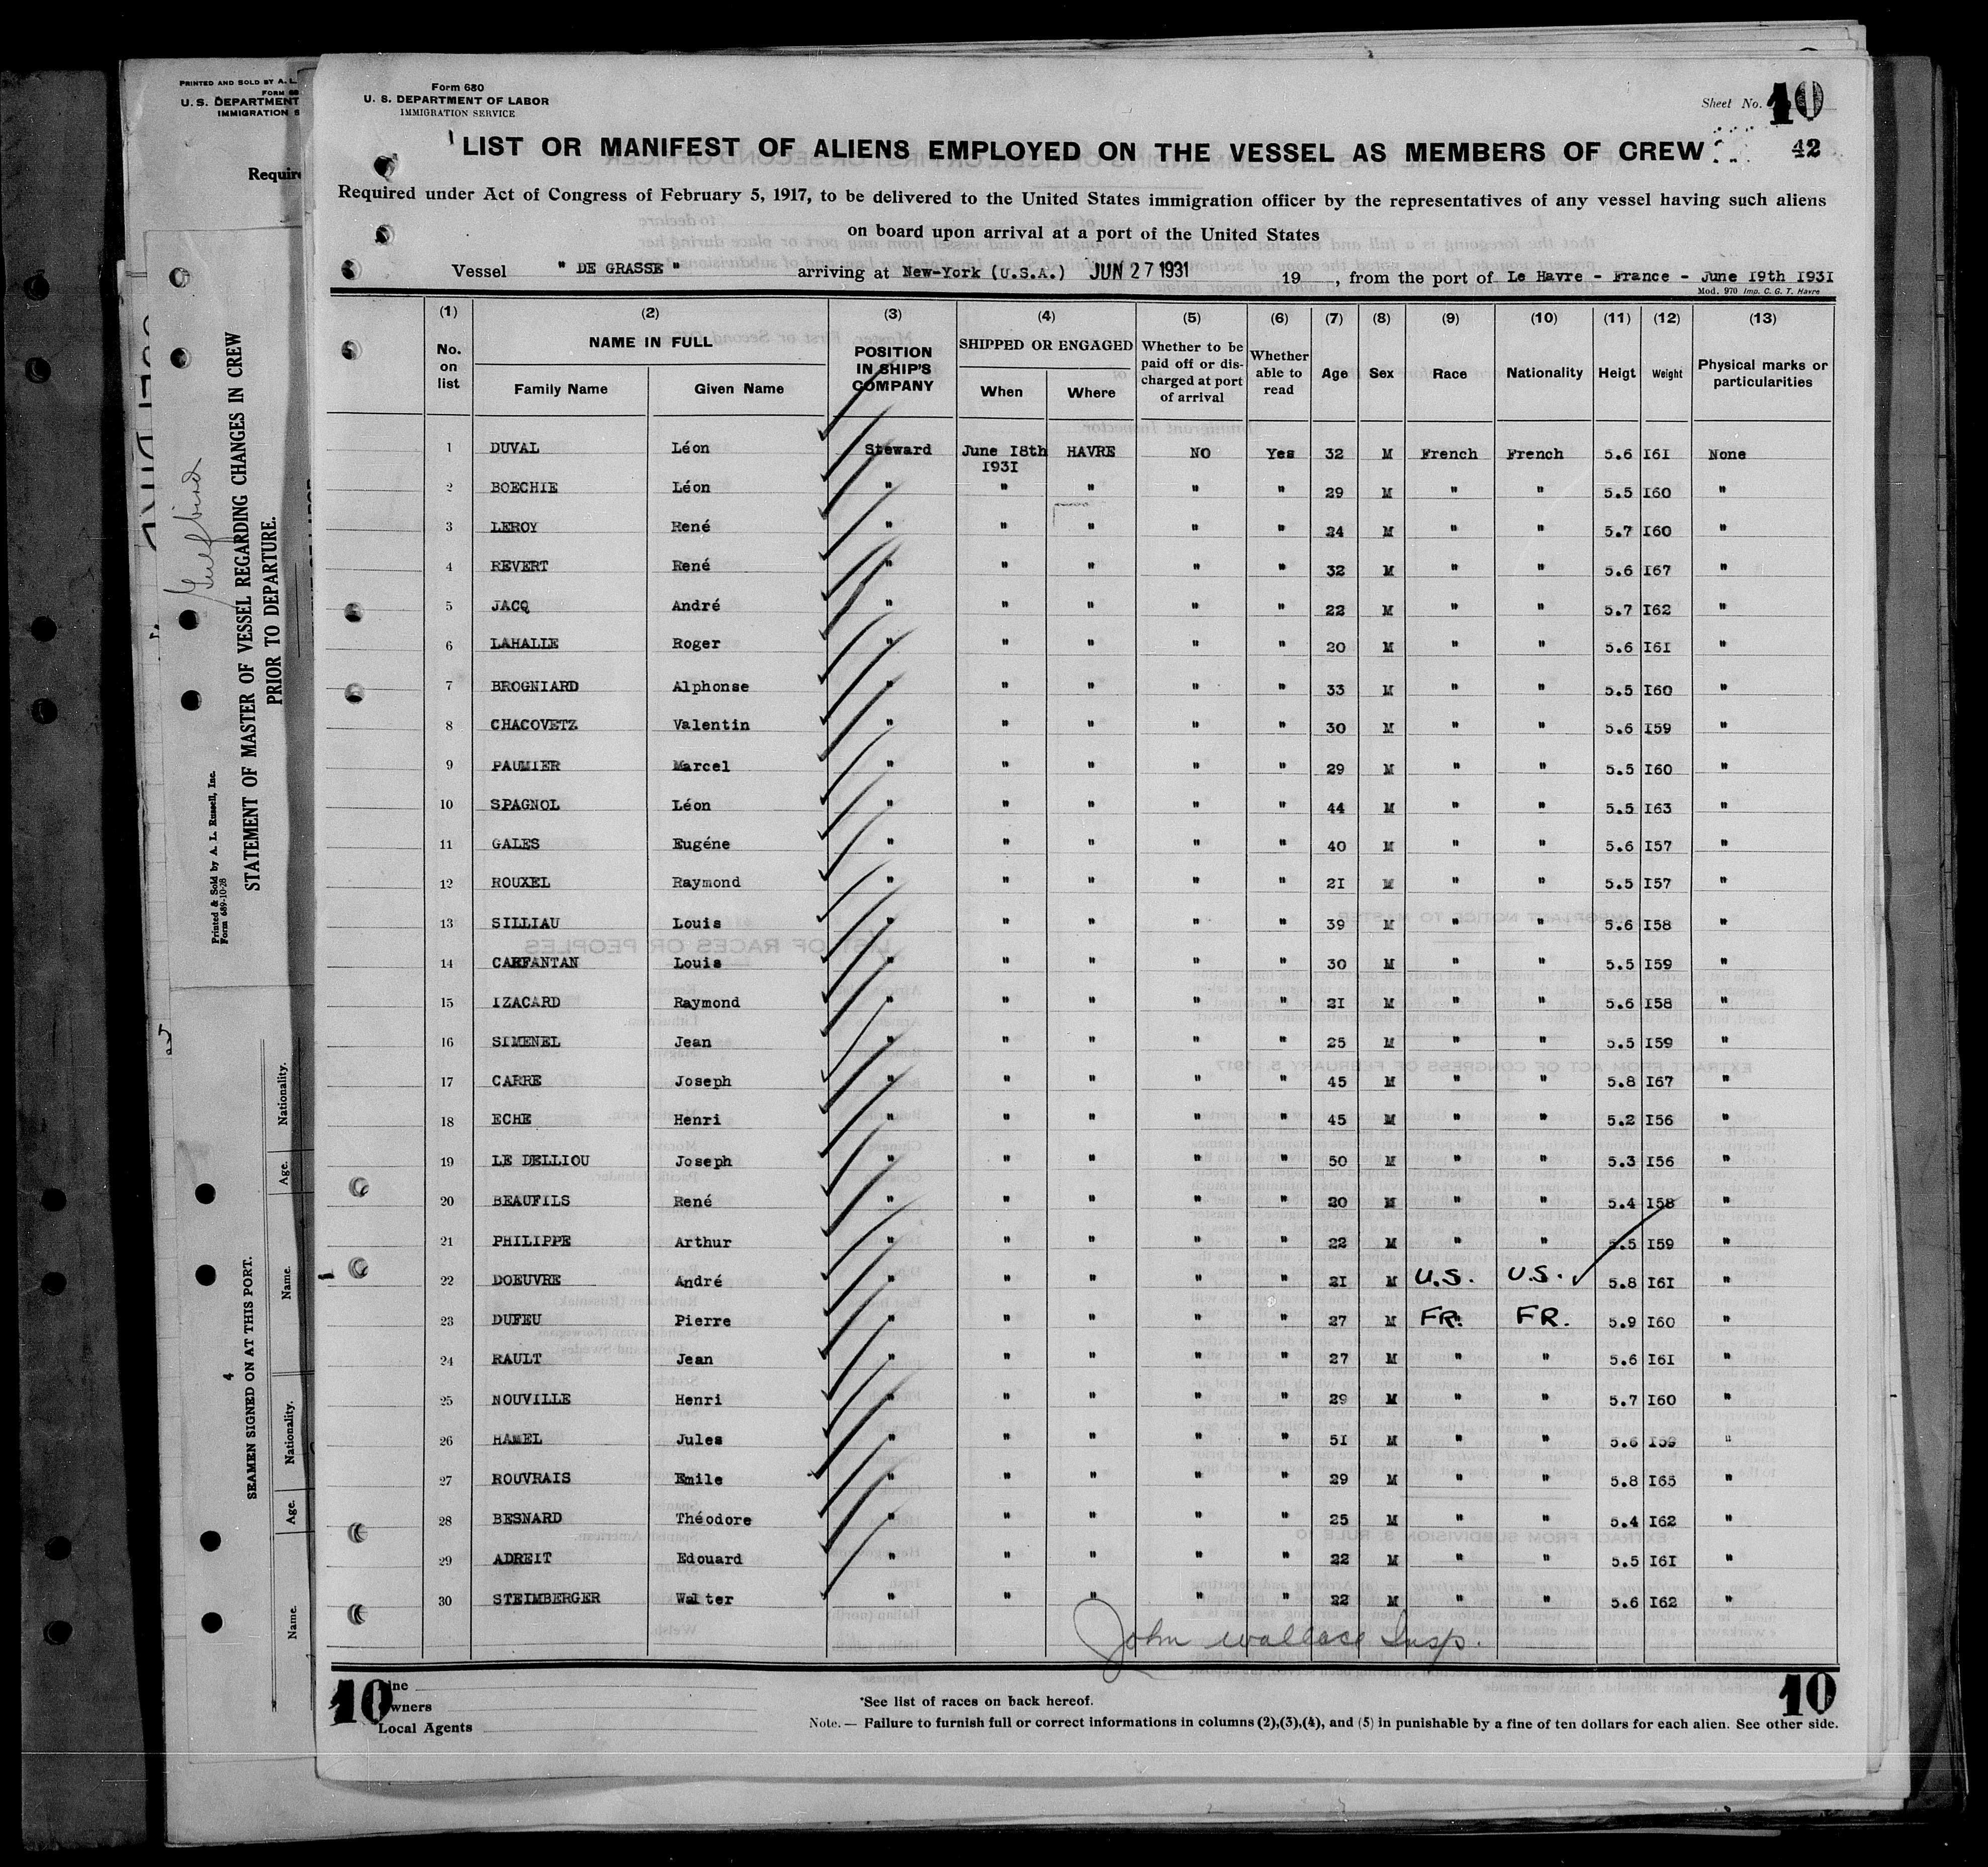 PRINTED AND SOLD BY A. L.
U. S. DEPARTMENT
IMMIGRATION S
Require
Printed & Sold by A. L. Russell, Inc.
Form 689-10-28
STATEMENT OF MASTER OF VESSEL REGARDING CHANGES IN CREW
PRIOR TO DEPARTURE.
4
SEAMEN SIGNED ON AT THIS PORT.
Name. Age. Nationality. Name. Age. Nationality.
Form 680
U. S. DEPARTMENT OF LABOR
IMMIGRATION SERVICE
Sheet No. 10
42
LIST OR MANIFEST OF ALIENS EMPLOYED ON THE VESSEL AS MEMBERS OF CREW
Required under Act of Congress of February 5, 1917, to be delivered to the United States immigration officer by the representatives of any vessel having such aliens
on board upon arrival at a port of the United States
Vessel " DE GRASSE " arriving at New-York (U.S.A.) JUN 27 1931 19 , from the port of Le Havre - France - June I9th I93I
Mod. 970 Imp. C. G. T. Havre
(1) (2) (3) (4) (5) (6) (7) (8) (9) (10) (11) (12) (13)
No. on list NAME IN FULL Family Name Given Name POSITION IN SHIP'S COMPANY SHIPPED OR ENGAGED When Where Whether to be paid off or discharged at port of arrival Whether able to read Age Sex Race Nationality Heigt Weight Physical marks or particularities
1 DUVAL Léon Steward June I8th I93I HAVRE NO Yes 32 M French French 5.6 I6I None
2 BOECHIE Léon " " " " " 29 M " " 5.5 I60 "
3 LEROY René " " " " " 24 M " " 5.7 I60 "
4 REVERT René " " " " " 32 M " " 5.6 I67 "
5 JACQ André " " " " " 22 M " " 5.7 I62 "
6 LAHALLE Roger " " " " " 20 M " " 5.6 I6I "
7 BROGNIARD Alphonse " " " " " 33 M " " 5.5 I60 "
8 CHACOVETZ Valentin " " " " " 30 M " " 5.6 I59 "
9 PAUMIER Marcel " " " " " 29 M " " 5.5 I60 "
10 SPAGNOL Léon " " " " " 44 M " " 5.5 I63 "
11 GALES Eugéne " " " " " 40 M " " 5.6 I57 "
12 ROUXEL Raymond " " " " " 2I M " " 5.5 I57 "
13 SILLIAU Louis " " " " " 39 M " " 5.6 I58 "
14 CARFANTAN Louis " " " " " 30 M " " 5.5 I59 "
15 IZACARD Raymond " " " " " 2I M " " 5.6 I58 "
16 SIMENEL Jean " " " " " 25 M " " 5.5 I59 "
17 CARRE Joseph " " " " " 45 M " " 5.8 I67 "
18 ECHE Henri " " " " " 45 M " " 5.2 I56 "
19 LE DELLIOU Joseph " " " " " 50 M " " 5.3 I56 "
20 BEAUFILS René " " " " " 20 M " " 5.4 I58 "
21 PHILIPPE Arthur " " " " " 22 M " " 5.5 I59 "
22 DOEUVRE André " " " " " 2I M U.S. U.S. 5.8 I6I "
23 DUFEU Pierre " " " " " 27 M FR. FR. 5.9 I60 "
24 RAULT Jean " " " " " 27 M " " 5.6 I6I "
25 NOUVILLE Henri " " " " " 29 M " " 5.7 I60 "
26 HAMEL Jules " " " " " 5I M " " 5.6 I59 "
27 ROUVRAIS Emile " " " " " 29 M " " 5.8 I65 "
28 BESNARD Théodore " " " " " 25 M " " 5.4 I62 "
29 ADREIT Edouard " " " " " 22 M " " 5.5 I6I "
30 STEIMBERGER Walter " " " " " 22 M " " 5.6 I62 "
John Wallace Insp.
10
Line
Owners
Local Agents
*See list of races on back hereof.
Note. — Failure to furnish full or correct informations in columns (2),(3),(4), and (5) in punishable by a fine of ten dollars for each alien. See other side.
10